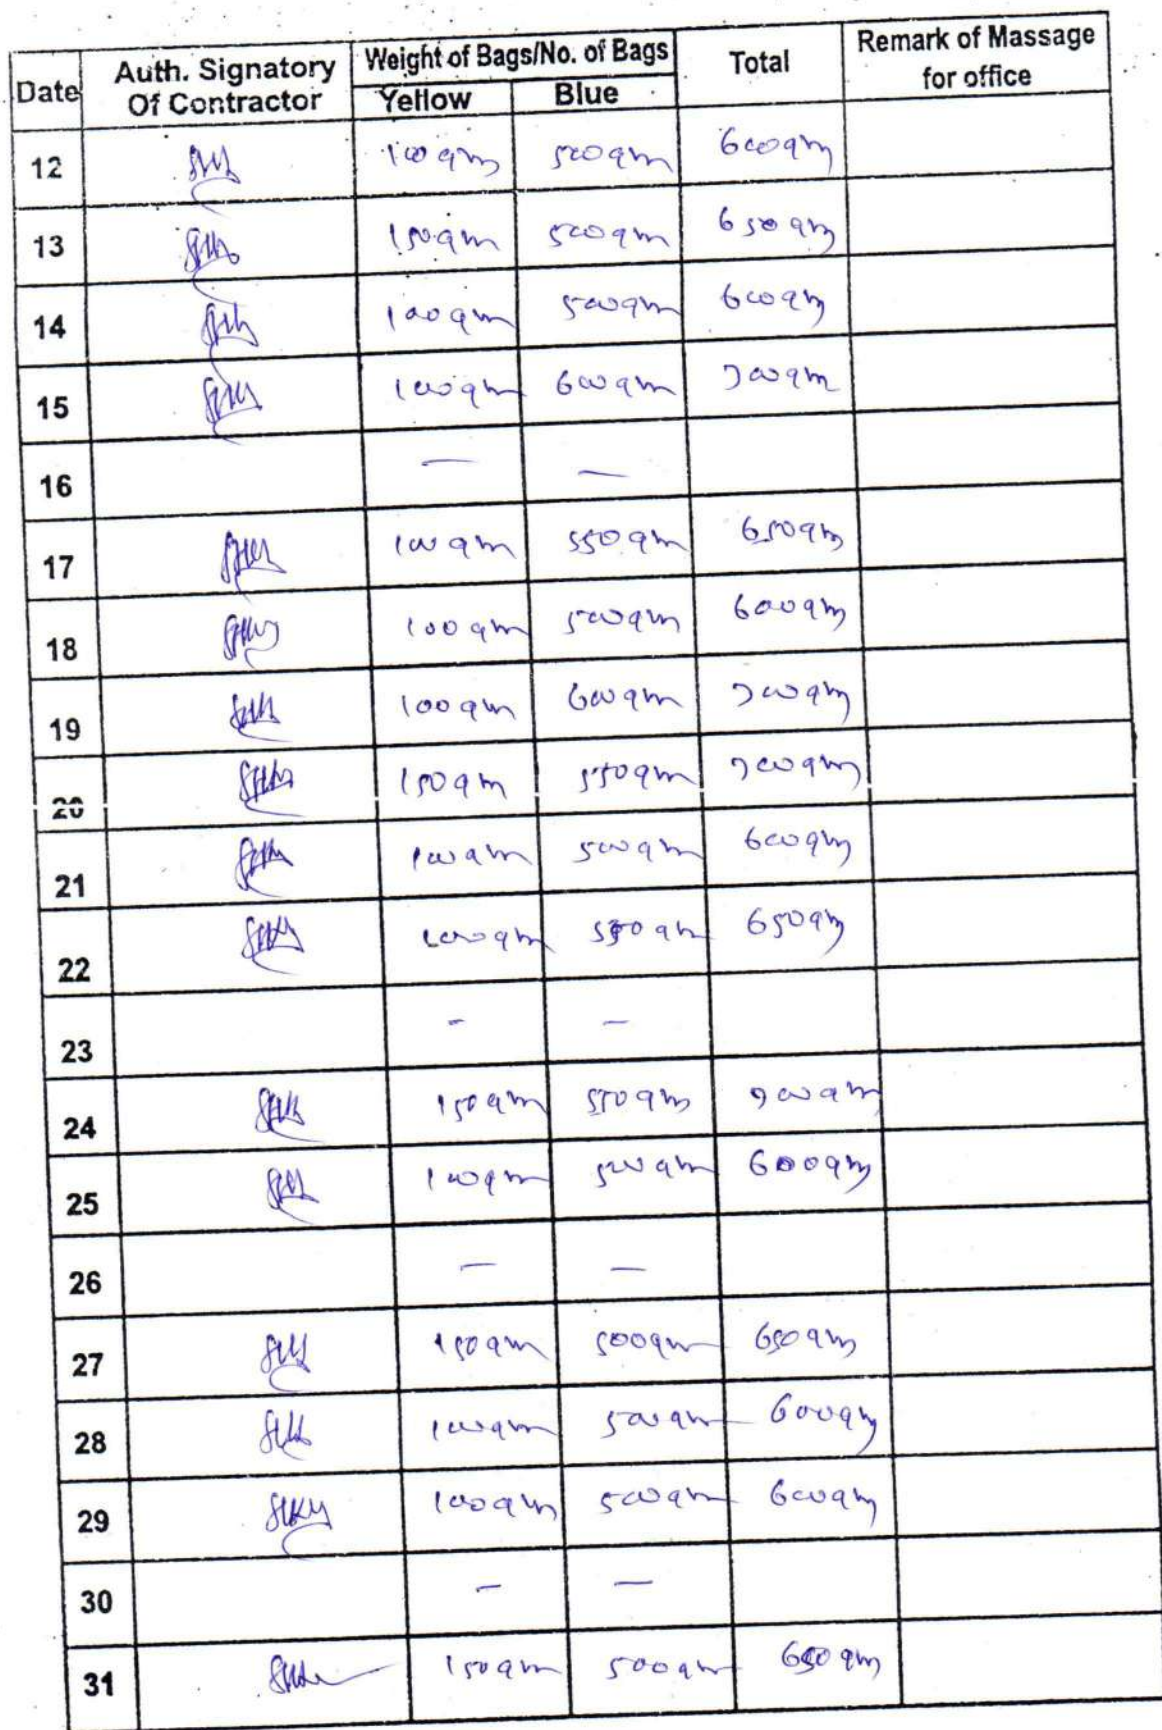 Date Auth. Signatory Of Contractor Weight of Bags/No. of Bags Yellow Blue Total Remark of Massage for office
12 100 gm 500 gm 600 gm
13 150 gm 500 gm 650 gm
14 100 gm 500 gm 600 gm
15 100 gm 600 gm 700 gm
16 — —
17 100 gm 550 gm 650 gm
18 100 gm 500 gm 600 gm
19 100 gm 600 gm 700 gm
20 150 gm 550 gm 700 gm
21 100 gm 500 gm 600 gm
22 100 gm 550 gm 650 gm
23 - —
24 150 gm 550 gm 700 gm
25 100 gm 500 gm 600 gm
26 — —
27 150 gm 500 gm 650 gm
28 100 gm 500 gm 600 gm
29 100 gm 500 gm 600 gm
30 - —
31 150 gm 500 gm 650 gm